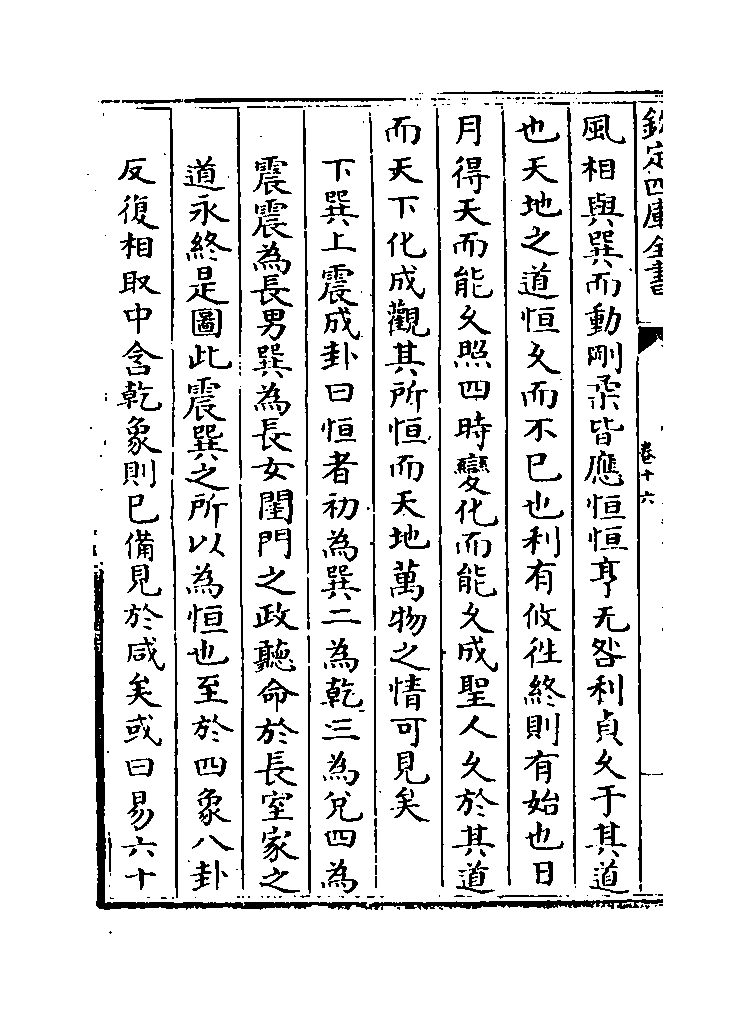 欽定四庫全書
卷十六
風相與巽而動剛柔皆應恒恒亨无咎利貞久于其道
也天地之道恒久而不已也利有攸往終則有始也日
月得天而能久照四時變化而能久成聖人久於其道
而天下化成觀其所恒而天地萬物之情可見矣
下巽上震成卦曰恒者初為巽二為乾三為兌四為
震震為長男巽為長女閨門之政聽命於長室家之
道永終是圖此震巽之所以為恒也至於四象八卦
反復相取中含乾象則已備見於咸矣或曰易六十